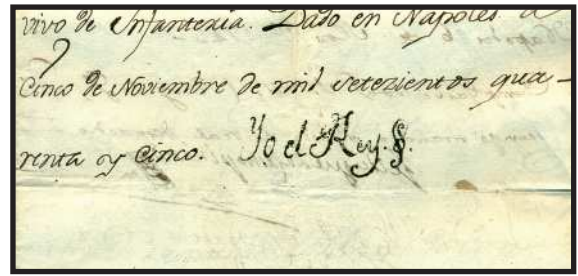 vivo de Infanteria. Dado en Napoles a
Cinco de Noviembre de mil setezientos qua-
renta y Cinco. Yo el Rey.